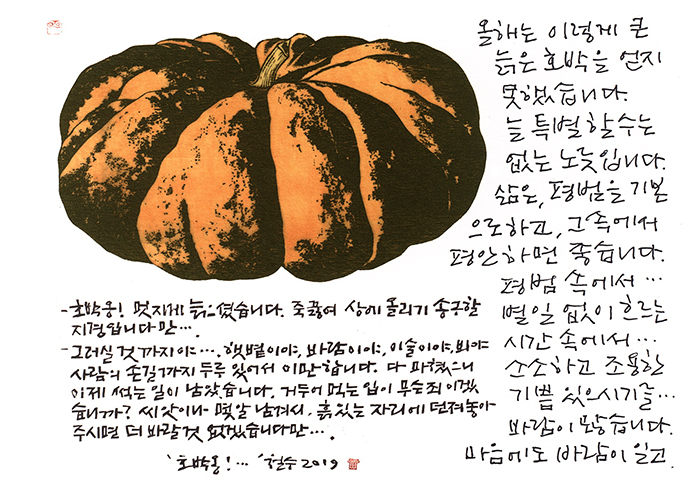 올해는 이렇게 큰
늙은 호박을 얻지
못했습니다.
늘 특별할 수는
없는 노릇입니다.
삶은, 평범을 기본
으로 하고, 그 속에서
평안하면 좋습니다.
평범 속에서…
별일 없이 흐르는
시간 속에서…
소소하고 조용한
기쁨 있으시기를…
바람이 많습니다.
마음에도 바람이 일고
- 호박옹! 멋지게 늙으셨습니다. 죽 끓여 상에 올리기 송구할
지경입니다만….
- 그러실 것까지야…. 햇볕이야, 바람이야, 이슬이야, 봐야
사람의 손길까지 두루 있어서 이만합니다. 다 파했으니
이제 썩는 일이 남았습니다. 거두어 먹는 입이 무슨 죄이겠
습니까? 씨앗이나 몇 알 남겨서, 흙 있는 자리에 던져놓아
주시면 더 바랄 것 없겠습니다만….
'호박옹!…' 철수 2019